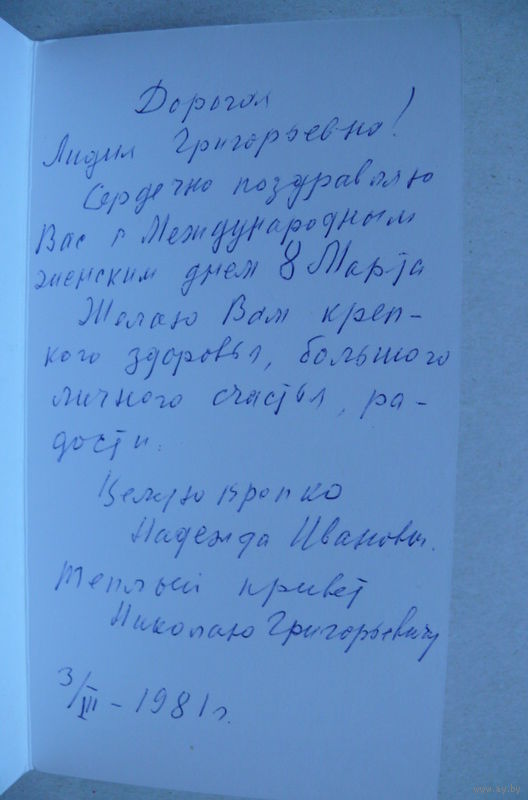 Дорогая
Лидия Григорьевна!
Сердечно поздравляю
Вас с Международным
женским днем 8 Марта
Желаю Вам креп-
кого здоровья, большого
личного счастья, ра-
дости.
Целую крепко
Надежда Ивановна.
Теплый привет
Николаю Григорьевичу
3/III - 1981 г.
www.ay.by